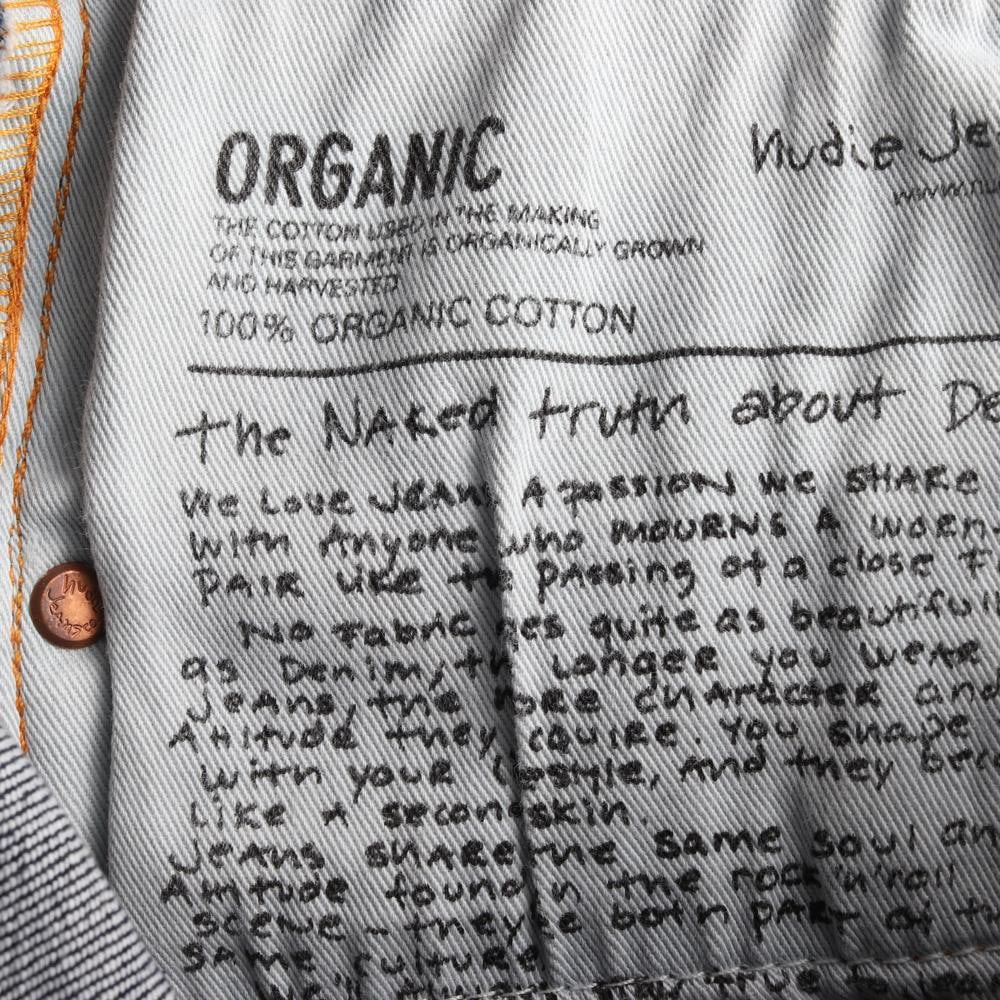 ORGANIC
Nudie Je
www.nu
THE COTTON USED IN THE MAKING
OF THIS GARMENT IS ORGANICALLY GROWN
AND HARVESTED
100% ORGANIC COTTON
the NAKed truth about De
We Love JEANS A passion we SHARE
with Anyone who MOURNS A worn
PAIR like the pAssing of a close F
No Fabric es quite as beautifull
as Denim, th Longer you WEAR
JeAns, the ore CHARACTER and
Attitude they cquire. You shape
with your estyle, And they beco
Like A second skin.
JEANS SHARE the same soul an
Attitude found n the rock'n'roll
scene - they e both PART of th
SAME culture